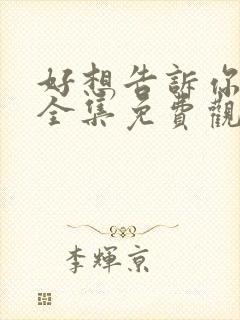 好想告訴你
全集免費觀
李輝京